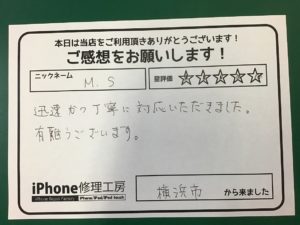 本日は当店をご利用頂きありがとうございます!
ご感想をお願いします!
ニックネーム
M.S
星評価
☆☆☆☆☆
迅速かつ丁寧に対応いただきました。
有難うございます。
iPhone修理工房
iPhone Repair Factory
iPhone/iPad/iPod touch
横浜市
から来ました